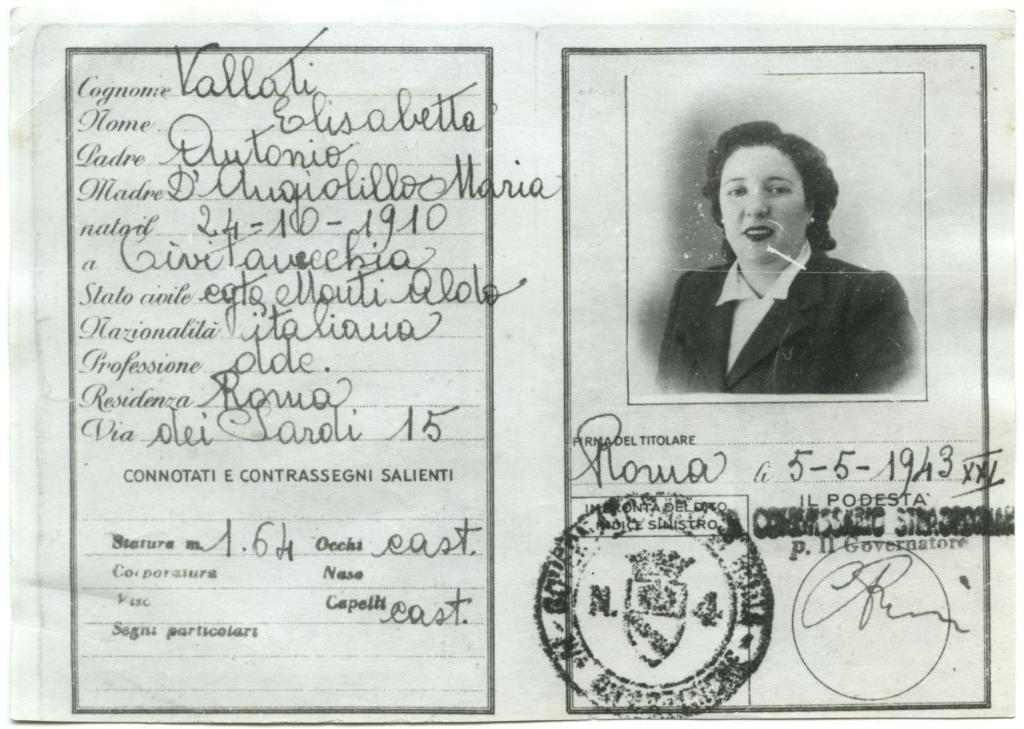 Cognome Vallati
Nome Elisabetta
Padre Antonio
Madre D'Angiolillo Maria
nato il 24=10-1910
a Civitavecchia
Stato civile cgta Monti Aldo
Nazionalità italiana
Professione adc.
Residenza Roma
Via dei Sardi 15
CONNOTATI E CONTRASSEGNI SALIENTI
Statura m. 1.64 Occhi cast.
Corporatura Naso
Viso Capelli cast.
Segni particolari
FIRMA DEL TITOLARE
Roma li 5-5-1943 XXI
IMPRONTA DEL DITO
INDICE SINISTRO
IL PODESTA'
p. Il Governatore
N. 4